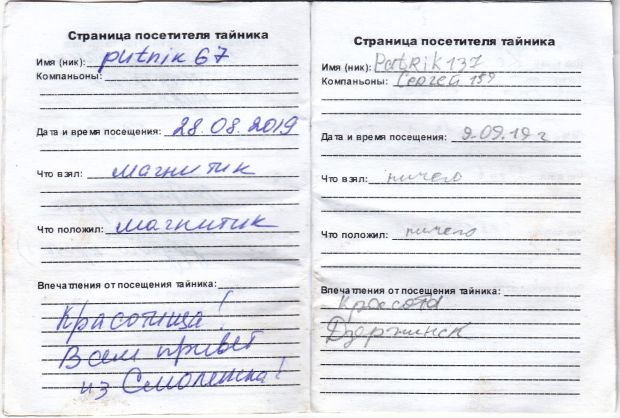 Страница посетителя тайника
Имя (ник): putnik 67
Компаньоны:
Дата и время посещения: 28.08.2019
Что взял: магнитик
Что положил: магнитик
Впечатления от посещения тайника:
Красотища!
Всем привет
из Смоленска!
Страница посетителя тайника
Имя (ник): PatRik137
Компаньоны: Сергей 159
Дата и время посещения: 9.09.19 г
Что взял: ничего
Что положил: ничего
Впечатления от посещения тайника:
Красота
Дзержинск